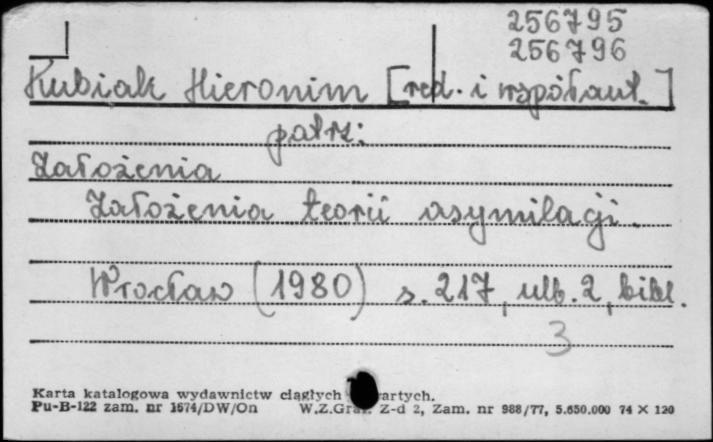 256795
256796
Kubiak Hieronim [red. i współaut.]
patrz:
Założenia
Założenia teorii asymilacji.
Wrocław (1980) s. 217, ulb. 2, bibl.
3
Karta katalogowa wydawnictw ciągłych
Pu-B-122 zam. nr 1674/DW/On W.Z.Graf. Z-d 2, Zam. nr 988/77, 5.650.000 74 X 120